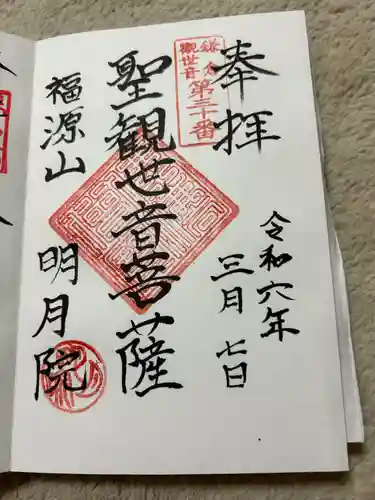 奉拝
令和六年
三月七日
鎌倉
観世音
第三十番
聖観世音菩薩
福源山
明月院